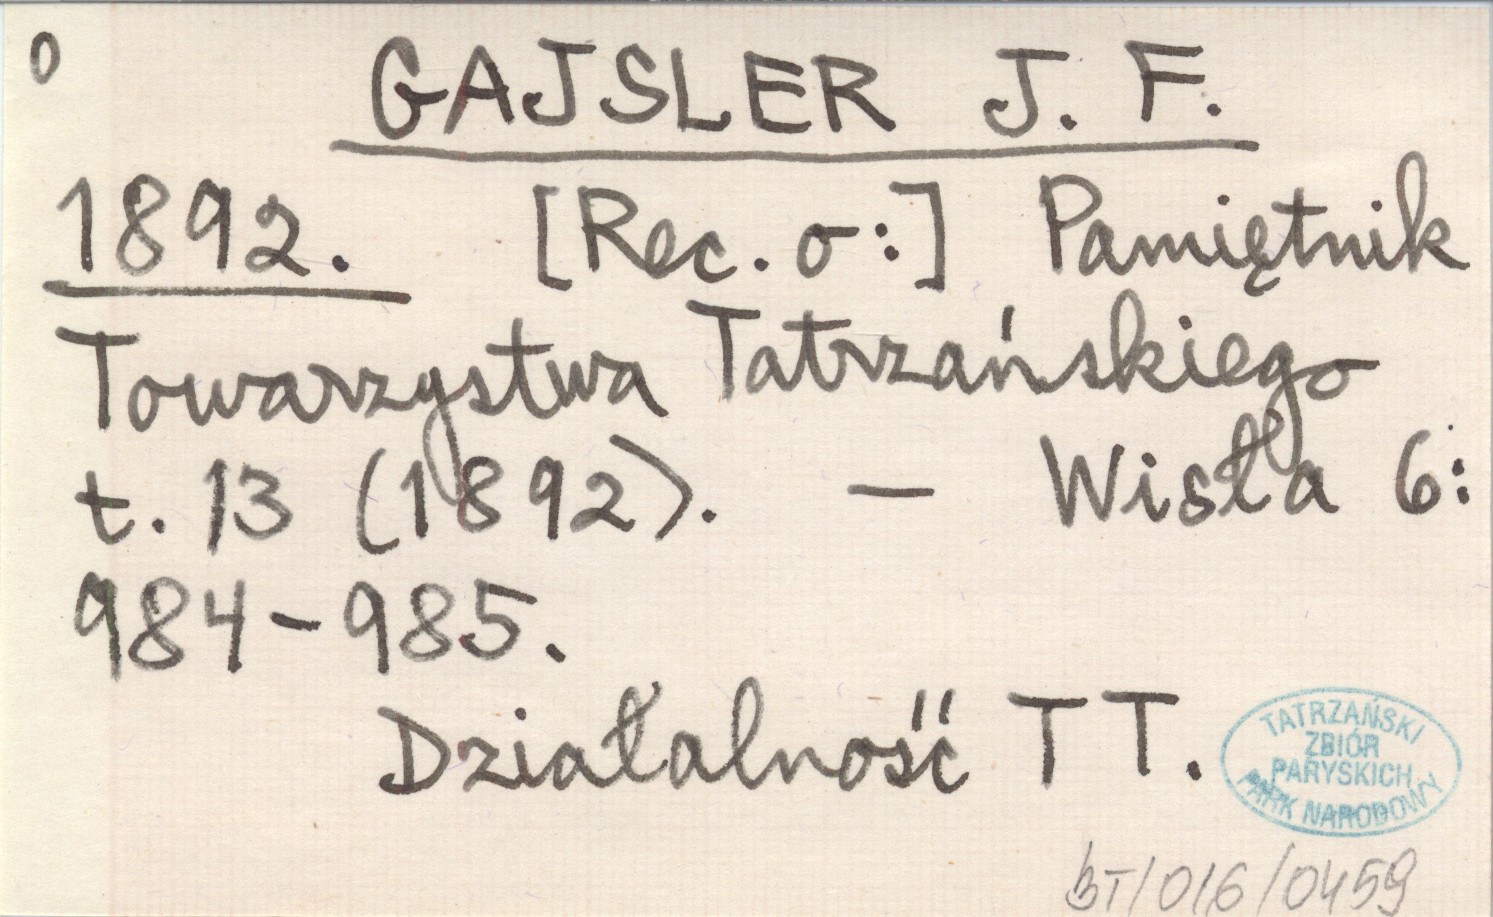 0
GAJSLER J. F.
1892. [Rec. o:] Pamiętnik
Towarzystwa Tatrzańskiego
t. 13 (1892). – Wisła 6:
984-985.
Działalność TT.
TATRZAŃSKI
ZBIÓR
PARYSKICH
PARK NARODOWY
BT/016/0459